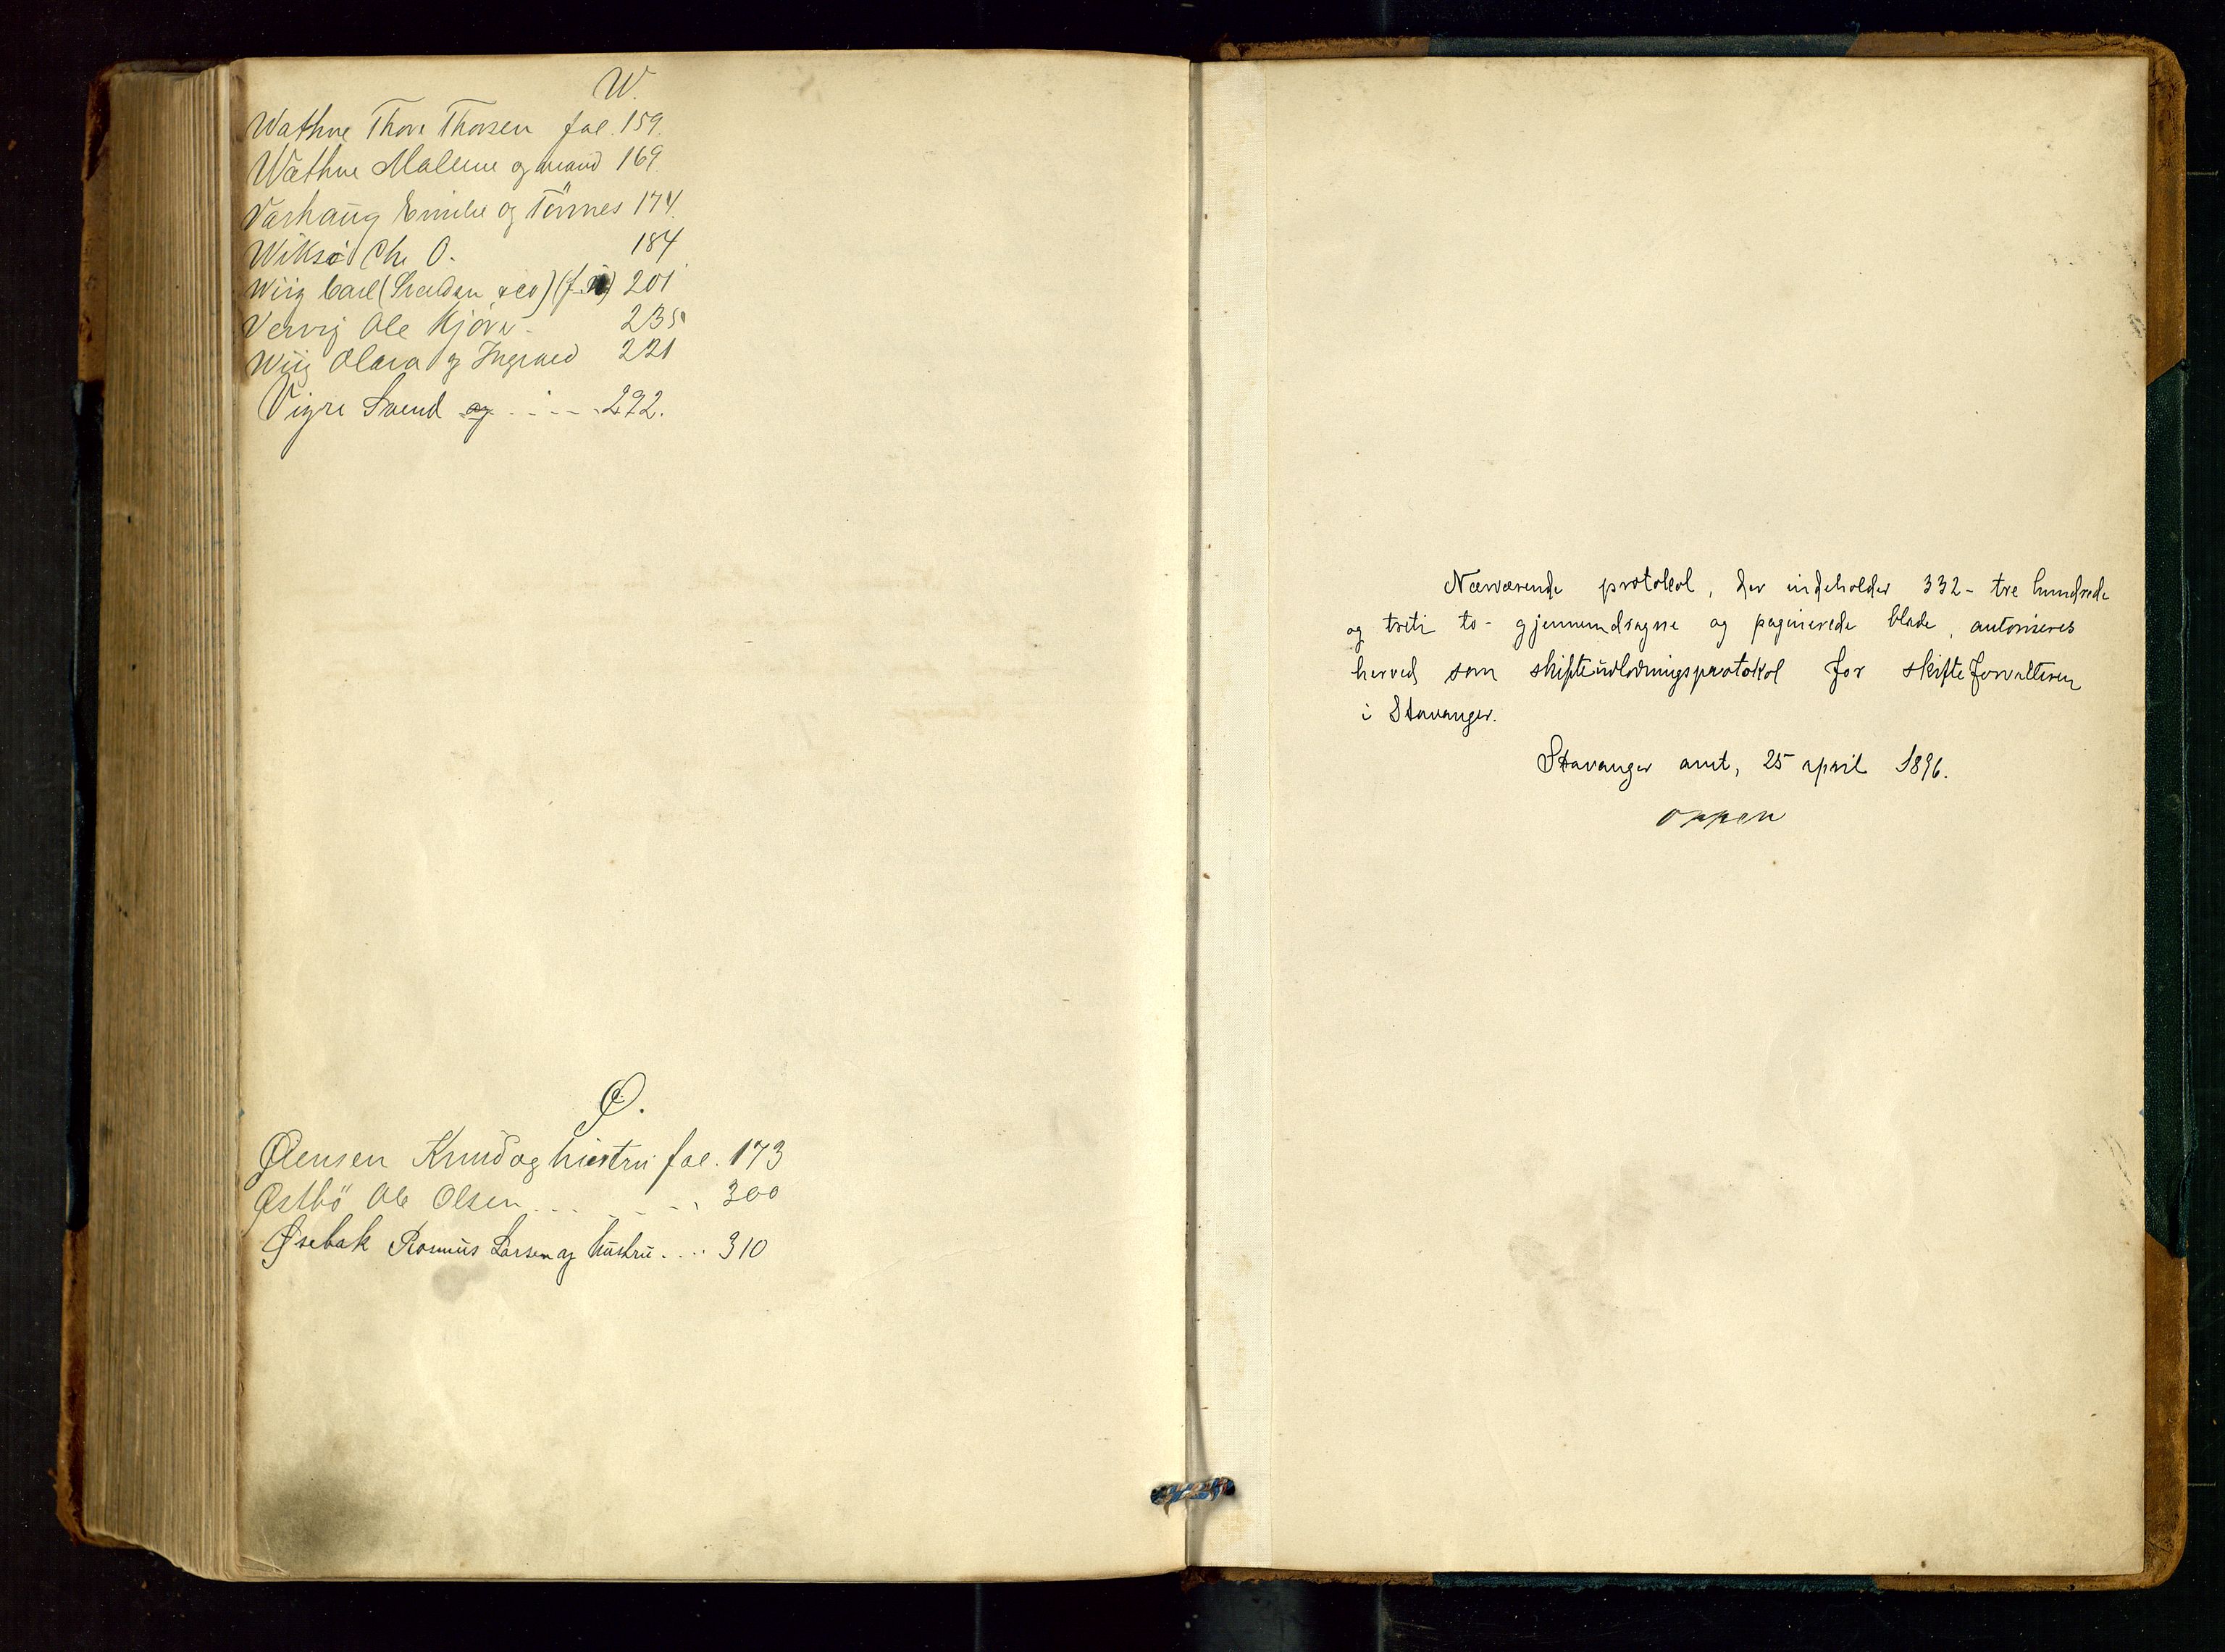 W.
Wathne Thore Thorsen fol. 159.
Wathne Malene og mand 169.
Varhaug Emilie og Tönnes 174.
Wiksö Chr O. 184
Wiig Carl ( & co) 201
Vervig Ole Kjöre - 235
Wiig Olava og Ingvald 221
Vigre Svend og - - - - 292.
Ø.
Ølensen Knud og hustru fol. 173
Østbö Ole Olsen . . . - - - 300
Øsebak Rasmus Larsen og hustru . . . . 310
Nærværende protokol, der indeholder 332 - tre hundrede
og treti to - gjennemdragne og paginerede blade, autoriseres
herved som skifteudlodningsprotokol for skifteforvalteren
i Stavanger.
Stavanger amt, 25 april 1896.
Oppen